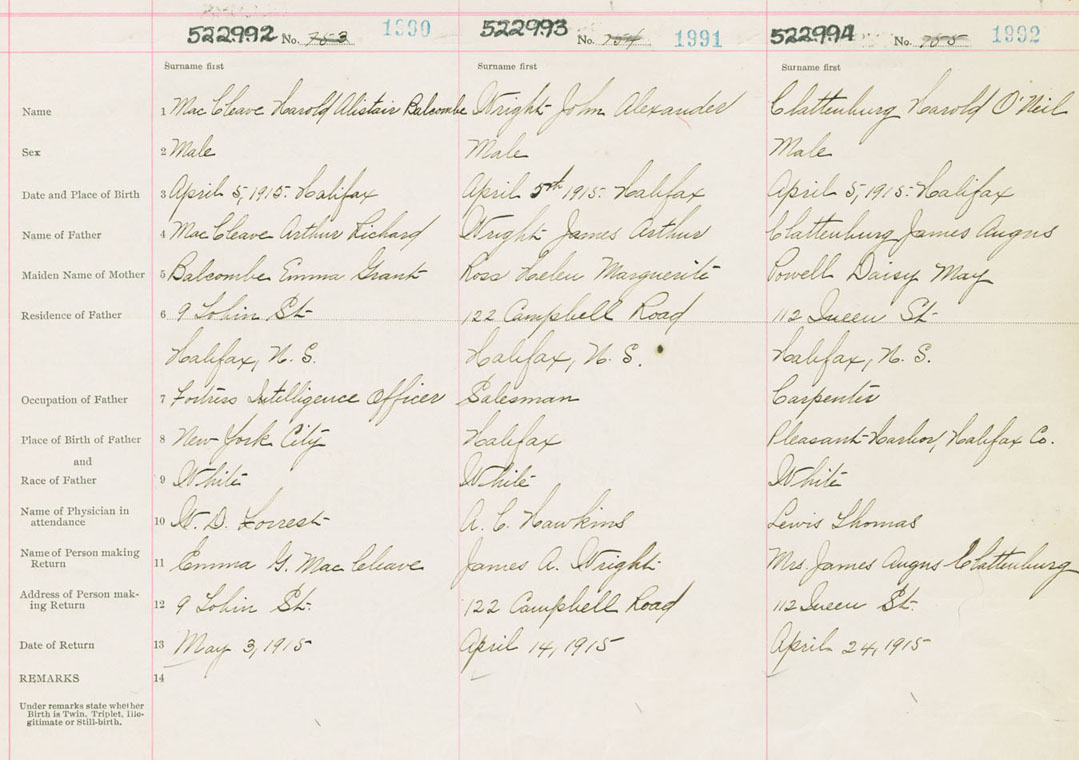 522992 No. 753 1990 522993 No. 754 1991 522994 No. 755 1992
Surname first Surname first Surname first
Name 1 MacCleave Harold Alistair Balcombe Wright John Alexander Clattenburg Harold O'Neil
Sex 2 Male Male Male
Date and Place of Birth 3 April 5, 1915. Halifax April 5th 1915. Halifax April 5, 1915. Halifax
Name of Father 4 MacCleave Arthur Richard Wright James Arthur Clattenburg James Angus
Maiden Name of Mother 5 Balcombe Emma Grant Ross Helen Marguerite Powell Daisy May
Residence of Father 6 9 Tobin St. 122 Campbell Road 112 Queen St.
Halifax, N.S. Halifax, N.S. Halifax, N.S.
Occupation of Father 7 Fortress Intelligence Officer Salesman Carpenter
Place of Birth of Father 8 New York City Halifax Pleasant Harbor, Halifax Co.
and
Race of Father 9 White White White
Name of Physician in
attendance 10 W. D. Forrest A. C. Hawkins Lewis Thomas
Name of Person making
Return 11 Emma G. MacCleave James A. Wright Mrs. James Angus Clattenburg
Address of Person mak-
ing Return 12 9 Tobin St. 122 Campbell Road 112 Queen St.
Date of Return 13 May 3, 1915 April 14, 1915 April 24, 1915
REMARKS 14
Under remarks state whether
Birth is Twin, Triplet, Ille-
gitimate or Still-birth.